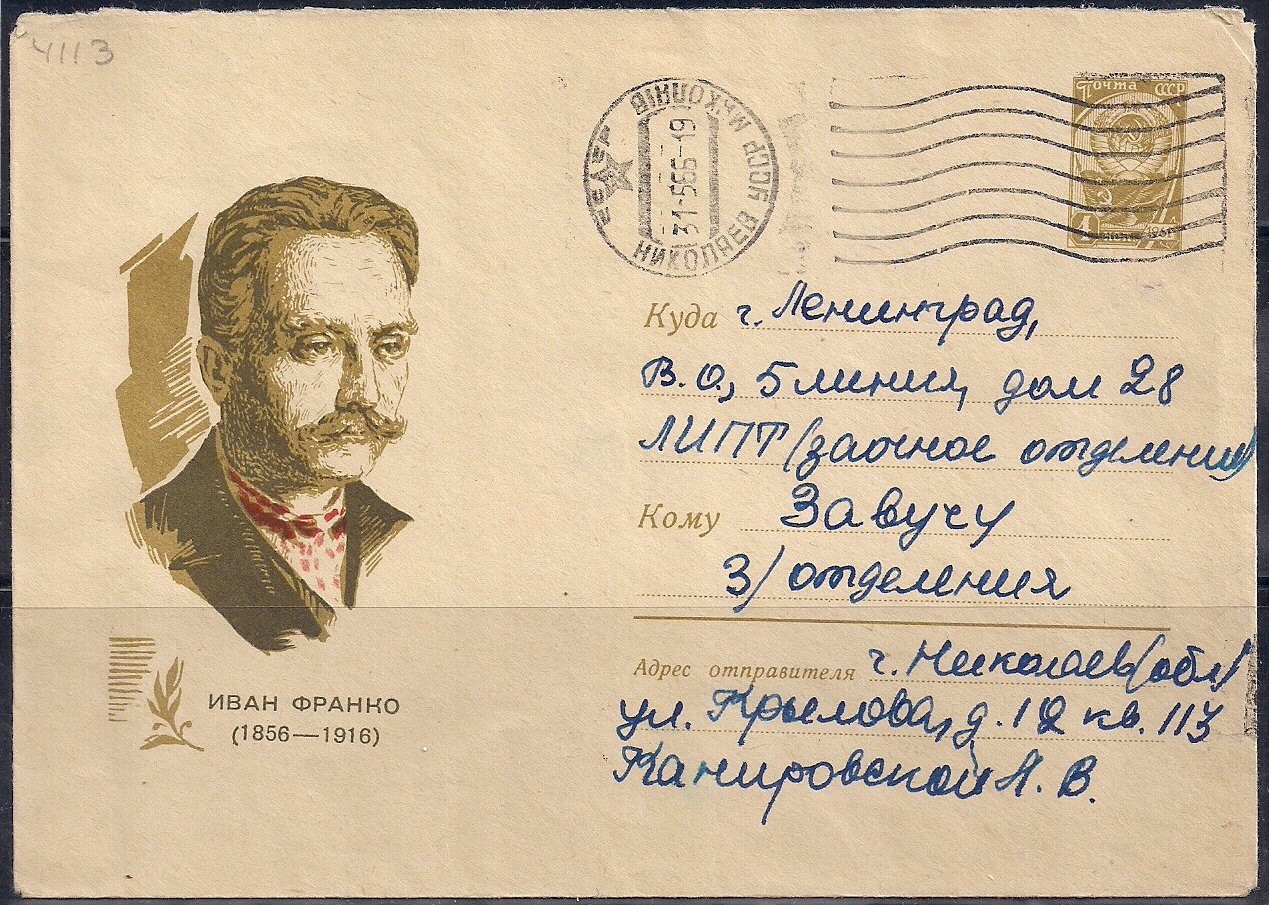 4113
НИКОЛАЕВ УССР МИКОЛАÏВ
31-566-19
Почта СССР
4 1961
Куда г. Ленинград,
В.О., 5 линия, дом 28
ЛИПТ (заочное отделение)
Кому Завучу
З/отделения
Адрес отправителя г. Николаев (обл)
ул. Крылова, д. 12 кв. 113
В.
ИВАН ФРАНКО
(1856—1916)